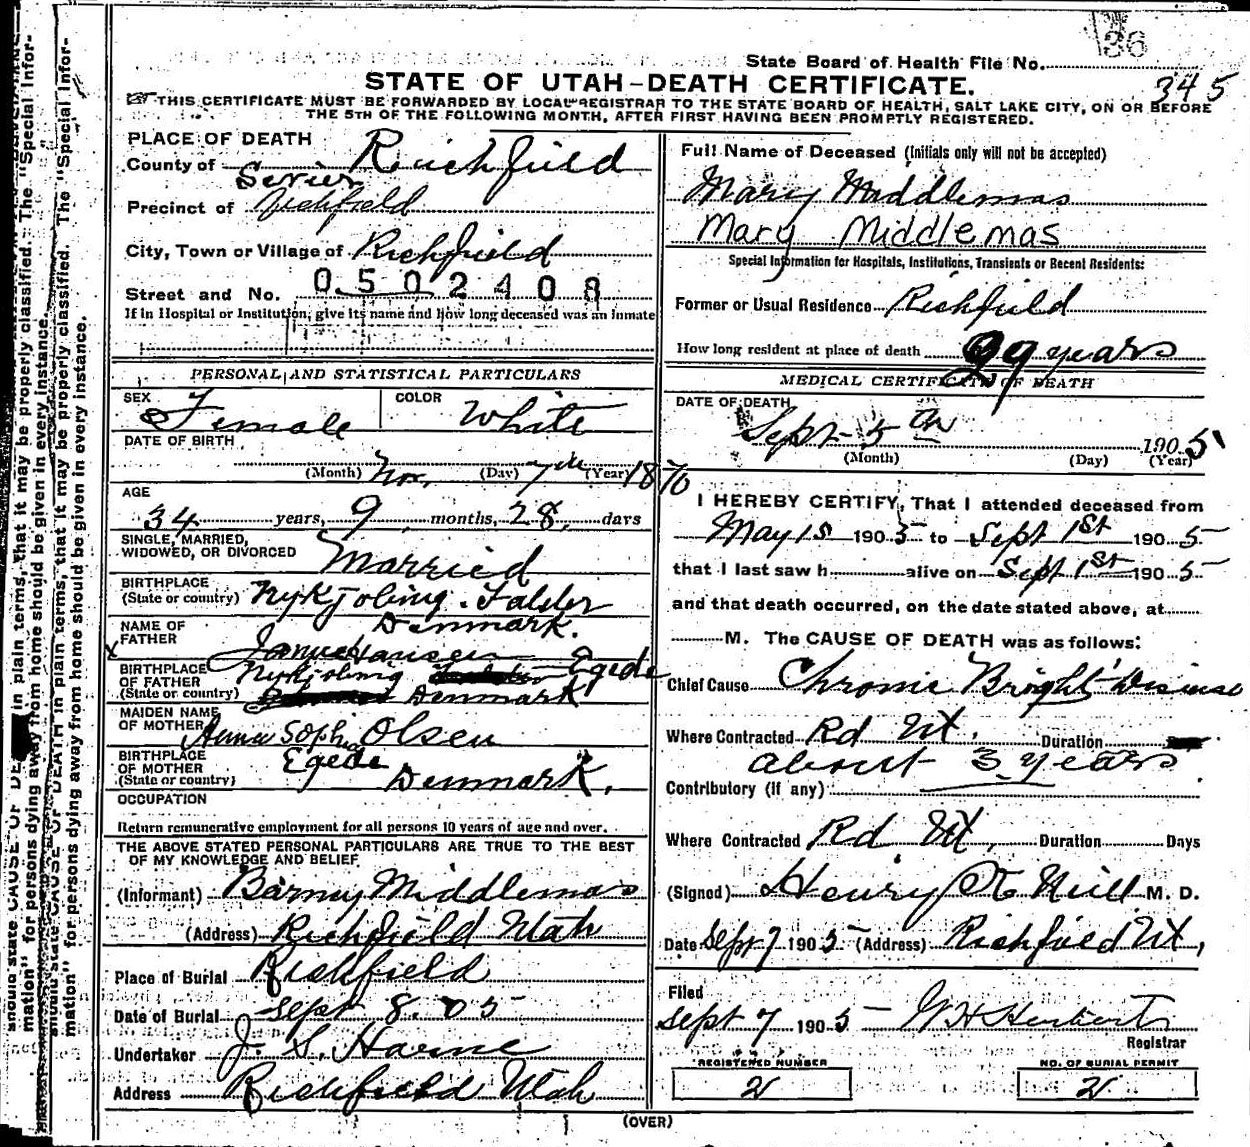 36
State Board of Health File No.
345
STATE OF UTAH-DEATH CERTIFICATE.
THIS CERTIFICATE MUST BE FORWARDED BY LOCAL REGISTRAR TO THE STATE BOARD OF HEALTH, SALT LAKE CITY, ON OR BEFORE
THE 5TH OF THE FOLLOWING MONTH, AFTER FIRST HAVING BEEN PROMPTLY REGISTERED.
PLACE OF DEATH
County of Richfield
Sevier
Precinct of Richfield
City, Town or Village of Richfield
0502408
Street and No.
If in Hospital or Institution, give its name and how long deceased was an inmate
PERSONAL AND STATISTICAL PARTICULARS
SEX Female COLOR White
DATE OF BIRTH
(Month) Nov. (Day) 7th (Year) 1870
AGE
34 years, 9 months, 28, days
SINGLE, MARRIED,
WIDOWED, OR DIVORCED Married
BIRTHPLACE
(State or country) Nykjobing. Falster
Denmark.
NAME OF
FATHER Hansen
BIRTHPLACE
OF FATHER
(State or country) Nykjobing Egede
Denmark
MAIDEN NAME
OF MOTHER Anna Sophia Olsen
BIRTHPLACE
OF MOTHER
(State or country) Egede
Denmark.
OCCUPATION
Return remunerative employment for all persons 10 years of age and over.
THE ABOVE STATED PERSONAL PARTICULARS ARE TRUE TO THE BEST
OF MY KNOWLEDGE AND BELIEF
(Informant) Barney Middlemas
(Address) Richfield Utah
Place of Burial Richfield
Date of Burial Sept 8. 05
Undertaker J. S. Horne
Address Richfield Utah
Full Name of Deceased (Initials only will not be accepted)
Mary Middlemas
Mary Middlemas
Special Information for Hospitals, Institutions, Transients or Recent Residents:
Former or Usual Residence Richfield
How long resident at place of death 29 years
MEDICAL CERTIFICATE OF DEATH
DATE OF DEATH
Sept 5th 1905
(Month) (Day) (Year)
I HEREBY CERTIFY, That I attended deceased from
May 15 1905 to Sept 1st 1905
that I last saw h alive on Sept 1st 1905
and that death occurred, on the date stated above, at
M. The CAUSE OF DEATH was as follows:
Chief Cause Chronic Bright Disease
Where Contracted Rd Ut. Duration
about 3 years
Contributory (If any)
Where Contracted Rd Ut, Duration Days
(Signed) Henry K Neill M. D.
Date Sept 7 1905 (Address) Richfield Ut,
Filed
Sept 7 1905 W H Herbert
Registrar
REGISTERED NUMBER
2
NO. OF BURIAL PERMIT
2
(OVER)
in plain terms, that it may be properly classified. The "Special Infor-
mation" for persons dying away from home should be given in every instance.
should state CAUSE OF DEATH in plain terms, that it may be properly classified. The "Special Infor-
mation" for persons dying away from home should be given in every instance.